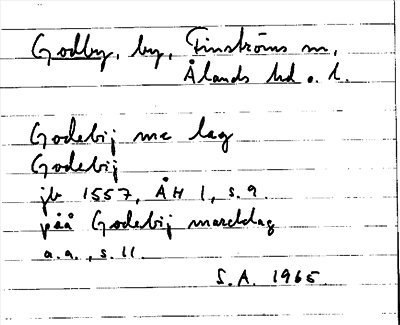 Godby, by, Finströms sn,
Ålands hd o. l.
Godebij me lag
Godebij
jb 1557, ÅH 1, s. 9.
påå Godebij marcklag
a.a., s. 11.
S.A. 1965